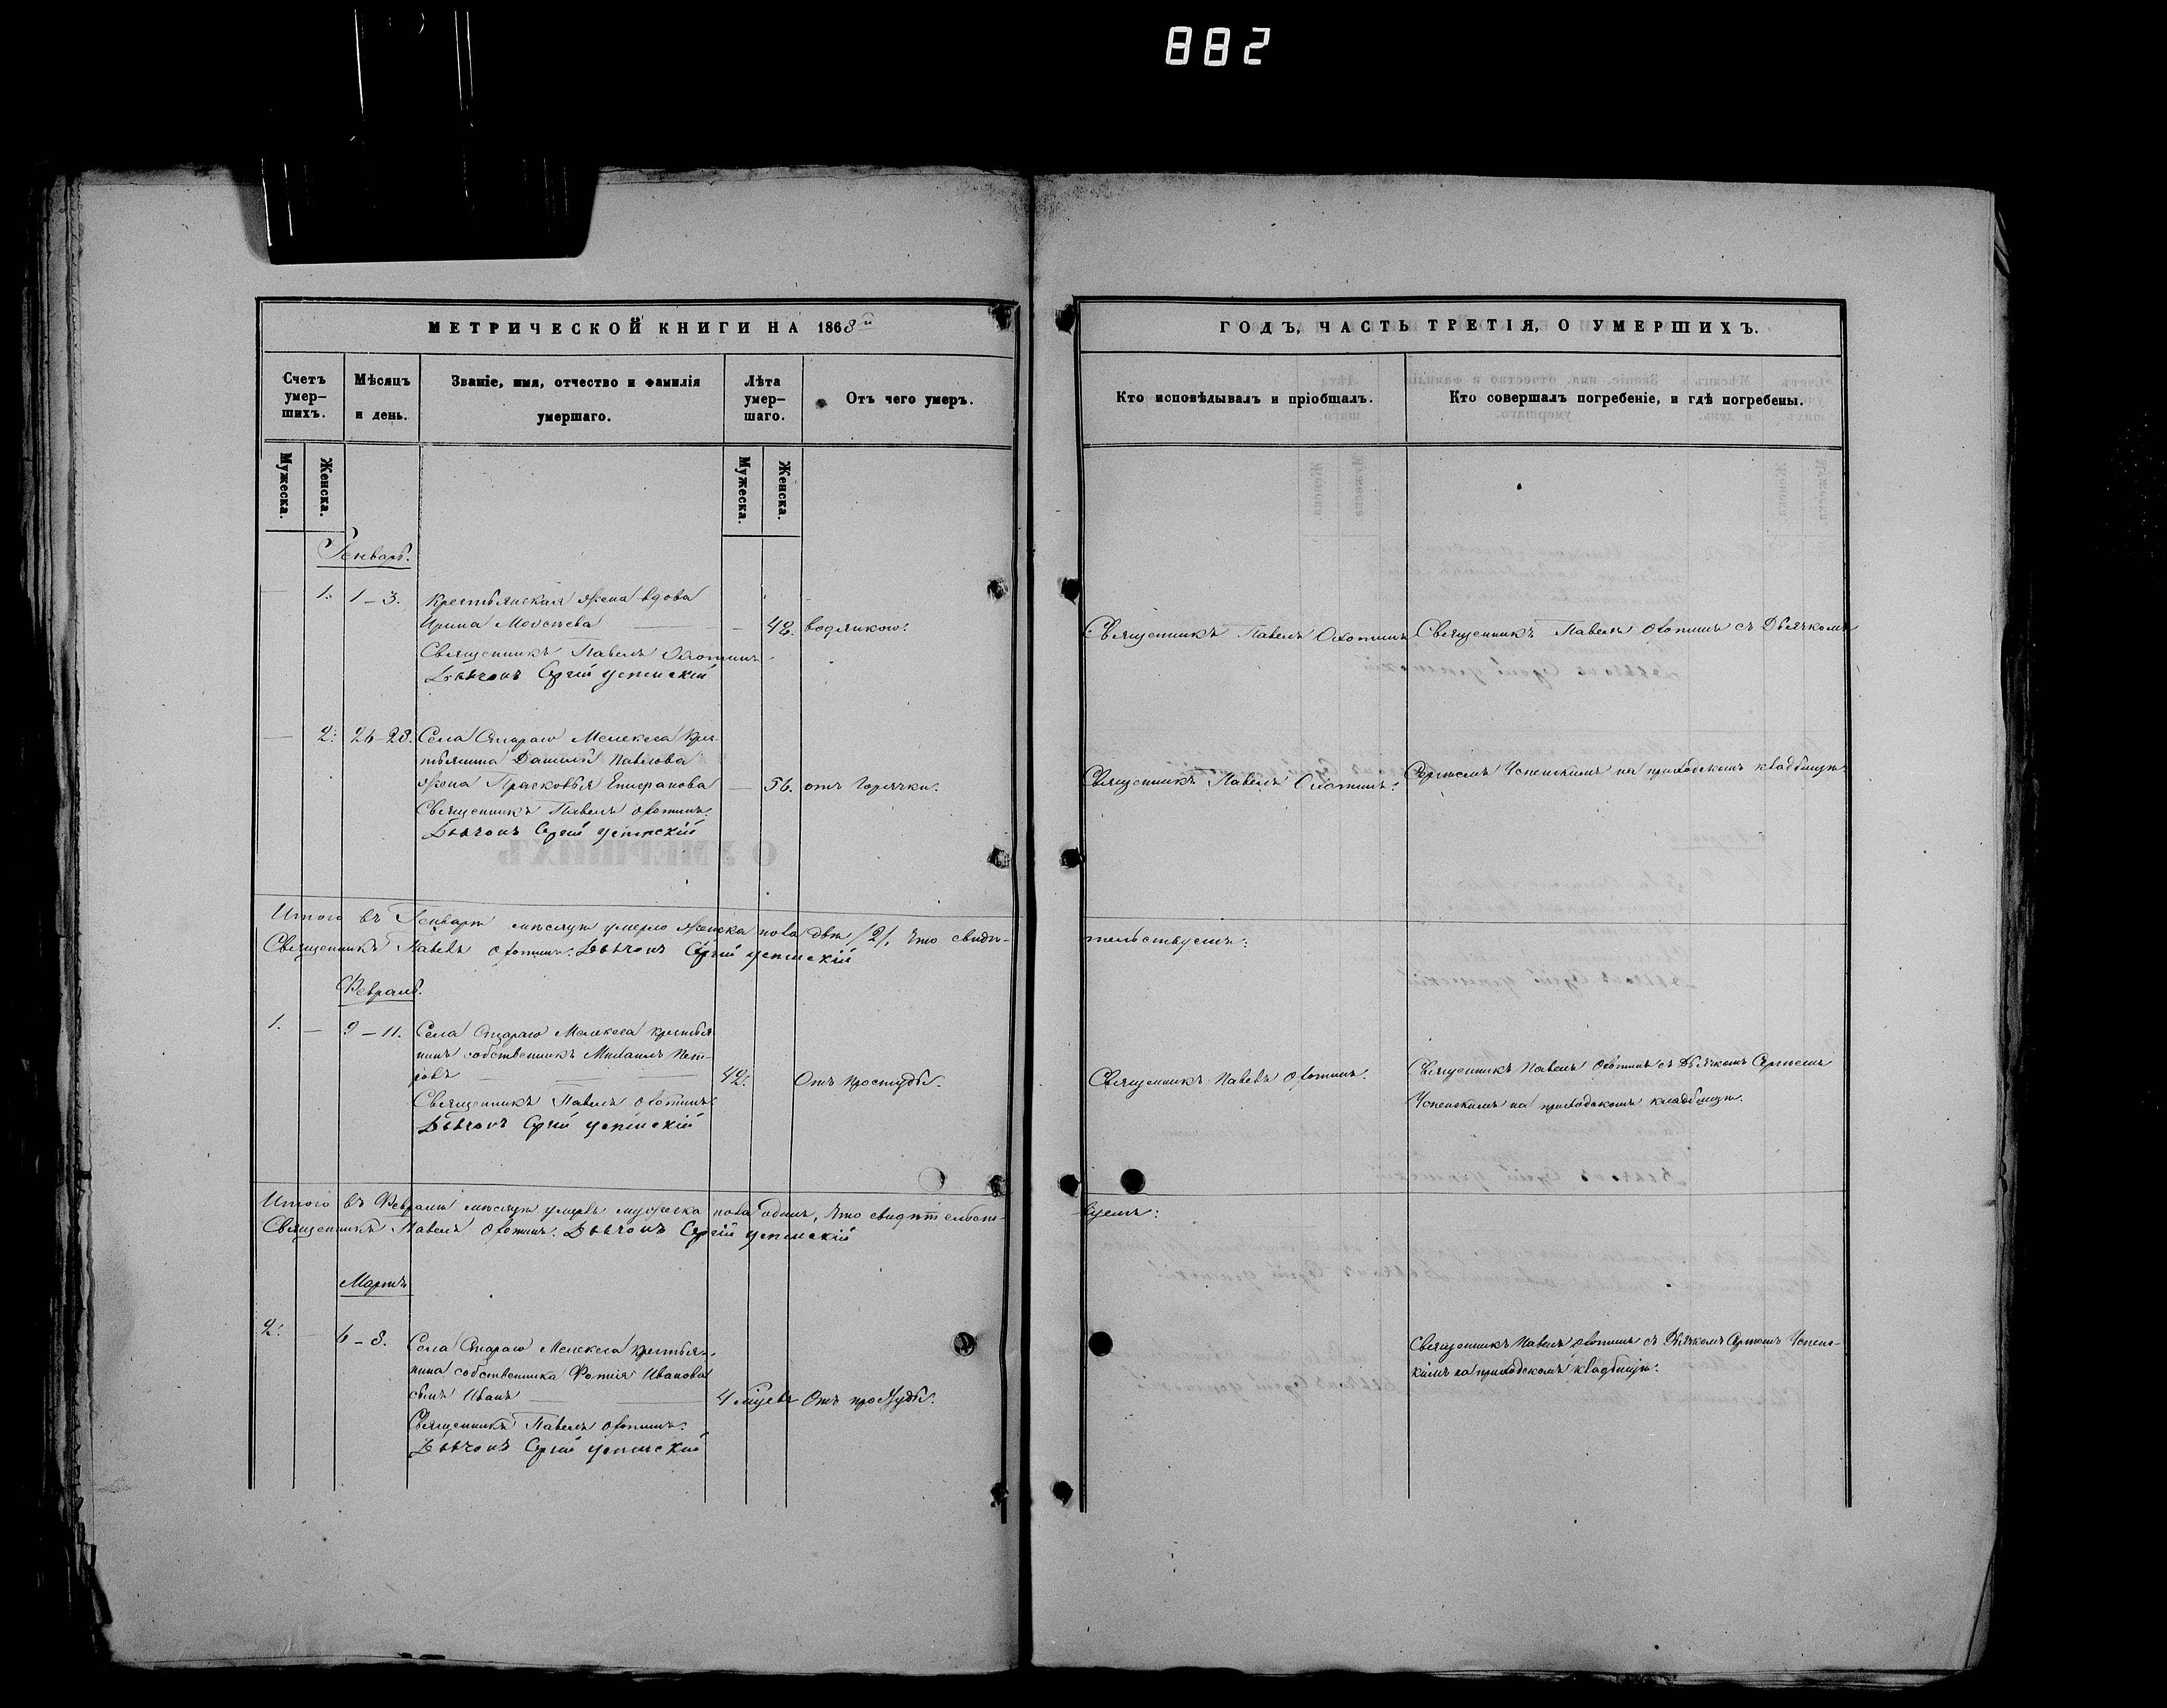 882
МЕТРИЧЕСКОЙ КНИГИ НА 1868й
Счетъ умер-
шихъ.
Мѣсяцъ
и день.
Званіе, имя, отчество и фамилія
умершаго.
Лѣта
умер-
шаго.
Отъ чего умеръ.
Мужеска.
Женска.
Мужеска.
Женска.
Генварь.
1. 1–3. Крестьянская жена вдова
Ирина Моисѣева — 48. водянкою.
Священникъ Павелъ Охотинъ
Дьячокъ Сергій Успенскій
2. 26–28. Села Стараго Мелекеса Крес-
тьянина Данилы Павлова
жена Прасковья Епифанова — 56. отъ горячки.
Священникъ Павелъ Охотинъ.
Дьячокъ Сергій Успенскій
Итого въ Генварѣ мѣсяцѣ умерло женска пола двѣ /2/, что свидѣ-
Священникъ Павелъ Охотинъ. Дьячокъ Сергій Успенскій
Февраль.
1. — 9–11. Села Стараго Мелекеса крестья
нинъ собственникъ Михаилъ Пет-
ровъ 42. Отъ простуды.
Священникъ Павелъ Охотинъ.
Дьячокъ Сергій Успенскій
Итого въ Февралѣ мѣсяцѣ умеръ мужеска пола одинъ, что свидѣтельст-
Священникъ Павелъ Охотинъ. Дьячокъ Сергій Успенскій
Мартъ
2. — 6–8. Села Стараго Мелекеса крестья-
нина собственника Фотія Иванова
сынъ Иванъ 4 мѣсяц Отъ простуды.
Священникъ Павелъ Охотинъ.
Дьячокъ Сергій Успенскій
ГОДЪ, ЧАСТЬ ТРЕТІЯ, О УМЕРШИХЪ.
Кто исповѣдывалъ и пріобщалъ.
Кто совершалъ погребеніе, и гдѣ погребены.
Священникъ Павелъ Охотинъ. Священникъ Павелъ Охотинъ съ Дьячкомъ
Священникъ Павелъ Охотинъ. Сергѣемъ Успенскимъ на приходскомъ кладбищѣ.
тельствуемъ:
Священникъ Павелъ Охотинъ. Священникъ Павелъ Охотинъ съ Дьячкомъ Сергѣемъ
Успенскимъ на приходскомъ кладбищѣ.
вуемъ:
Священникъ Павелъ Охотинъ съ Дьячкомъ Сергѣемъ Успенс-
кимъ на приходскомъ кладбищѣ.